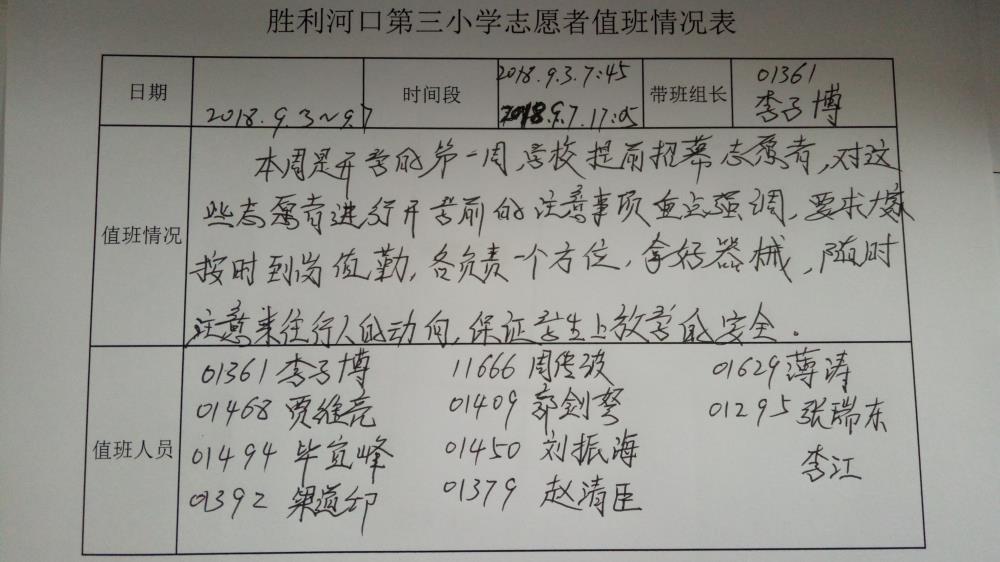 胜利河口第三小学志愿者值班情况表
日期 2018.9.3~9.7 时间段 2018.9.3.7:45 2018.9.7.17:05 带班组长 01361 李子博
值班情况
本周是开学的第一周,学校提前招募志愿者,对这
些志愿者进行开学前的注意事项重点强调,要求大家
按时到岗值勤,各负责一个方位,拿好器械,随时
注意来往行人的动向,保证学生上放学的安全.
值班人员
01361 李子博 11666 周传波 01629 薄涛
01468 贾维亮 01409 郭剑 01295 张瑞东
01494 毕宜峰 01450 刘振海 李江
01392 梁道印 01379 赵清臣